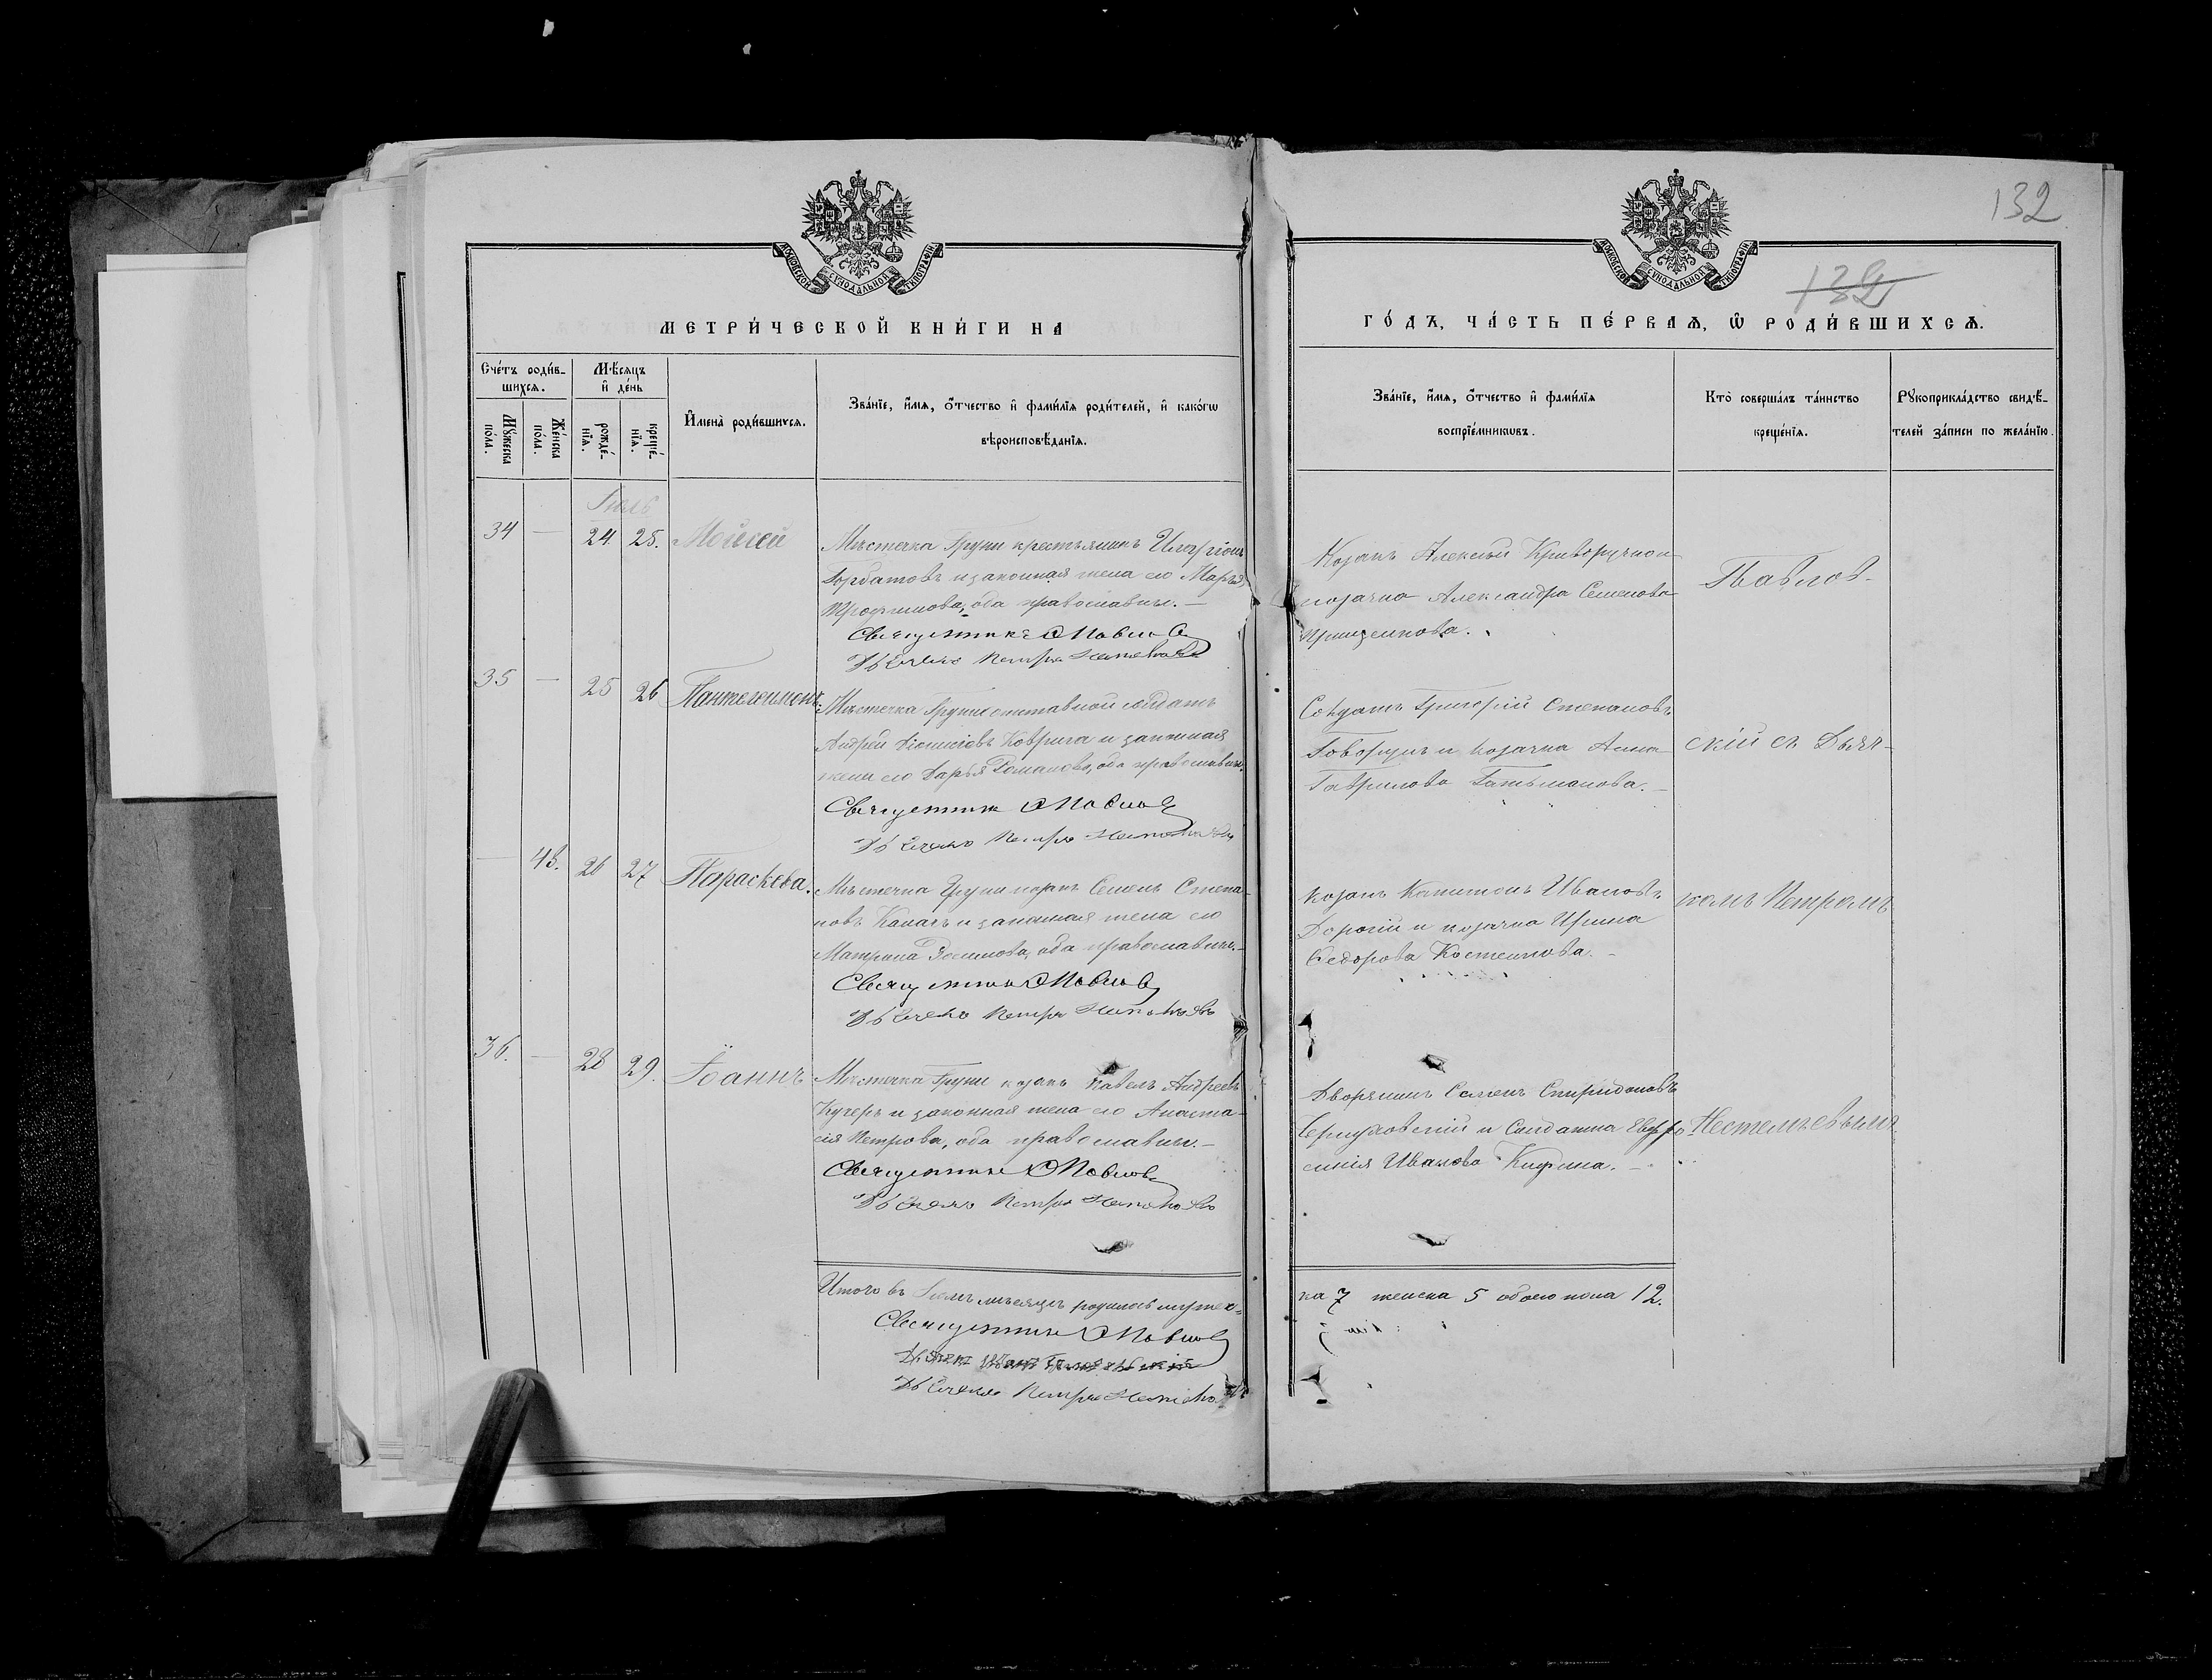 132
132
МОСКОВСКОЙ СѴНОДАЛЬНОЙ ТИПОГРАФІИ
МОСКОВСКОЙ СѴНОДАЛЬНОЙ ТИПОГРАФІИ
МЕТРИ́ЧЕСКОЙ КНИ́ГИ НА
ГО́ДЪ, ЧА́СТЬ ПЕ́РВАѦ, Ѿ РОДИ́ВШИХСѦ.
Сче́тъ роди́в-
шихсѧ.
Мꙋ́жеска
по́ла.
Же́нска
по́ла.
Мѣ́сѧцъ
и҆ де́нь
рожде́-
нїѧ.
креще́-
нїѧ.
И҆мена̀ роди́вшихсѧ.
Зва́нїе, и҆́мѧ, ѻ҆́тчество и҆ фами́лїѧ роди́телей, и҆ како́гѡ
вѣроисповѣ́данїѧ.
Зва́нїе, и҆́мѧ, ѻ҆́тчество и҆ фами́лїѧ
воспрїе́мникѡвъ.
Кто̀ соверша́лъ та́инство
креще́нїѧ.
Рꙋкоприкла́дство свидѣ́-
телей за́писи по жела́нїю.
Іюль
34 — 24. 25. Моисей
Мѣстечка Груни крестьянинъ
Горбатовъ и законная жена его Марѳа
Трофимова, оба православные.—
Священникъ Павлов
Дьячекъ Петръ
Козакъ Алексѣй Криворучко и
козачка Александра Семенова
Павлов-
35 — 25 26 Пантелеимонъ.
Мѣстечка Груни отставной солдатъ
Андрей Діонисіовъ Коврига и законная
жена его Дарья Романова, оба православные.
Священник Павлов
Дьячекъ Петръ
Солдатъ Григорій Степановъ
Говорунъ и козачка Анна
Гаврилова Гатьманова.—
скій съ Дьяч-
— 43. 26 27 Параскева.
Мѣстечка Груни козакъ Семенъ Степа-
новъ и законная жена его
Матрона Зосимова, оба православные.—
Священник Павлов
Дьячекъ Петръ
Козакъ Капитонъ Ивановъ
Дорогій и козачка Ирина
Ѳедорова Костенкова.—
комъ Петромъ
36. — 28 29. Іоаннъ
Мѣстечка Груни козакъ Павелъ Андреевъ
Кучеръ и законная жена его Анаста-
сія Петрова, оба православные.—
Священник Павлов
Дьячекъ Петръ
Дворянинъ Семенъ Спиридоновъ
и Солдатка Евфро-
синія Иванова
Нестельевымъ
Итого въ Іюлѣ мѣсяцѣ родилось мужес-
ка 7 женска 5 обоего пола 12.
Священник Павлов
Дьячекъ Петръ